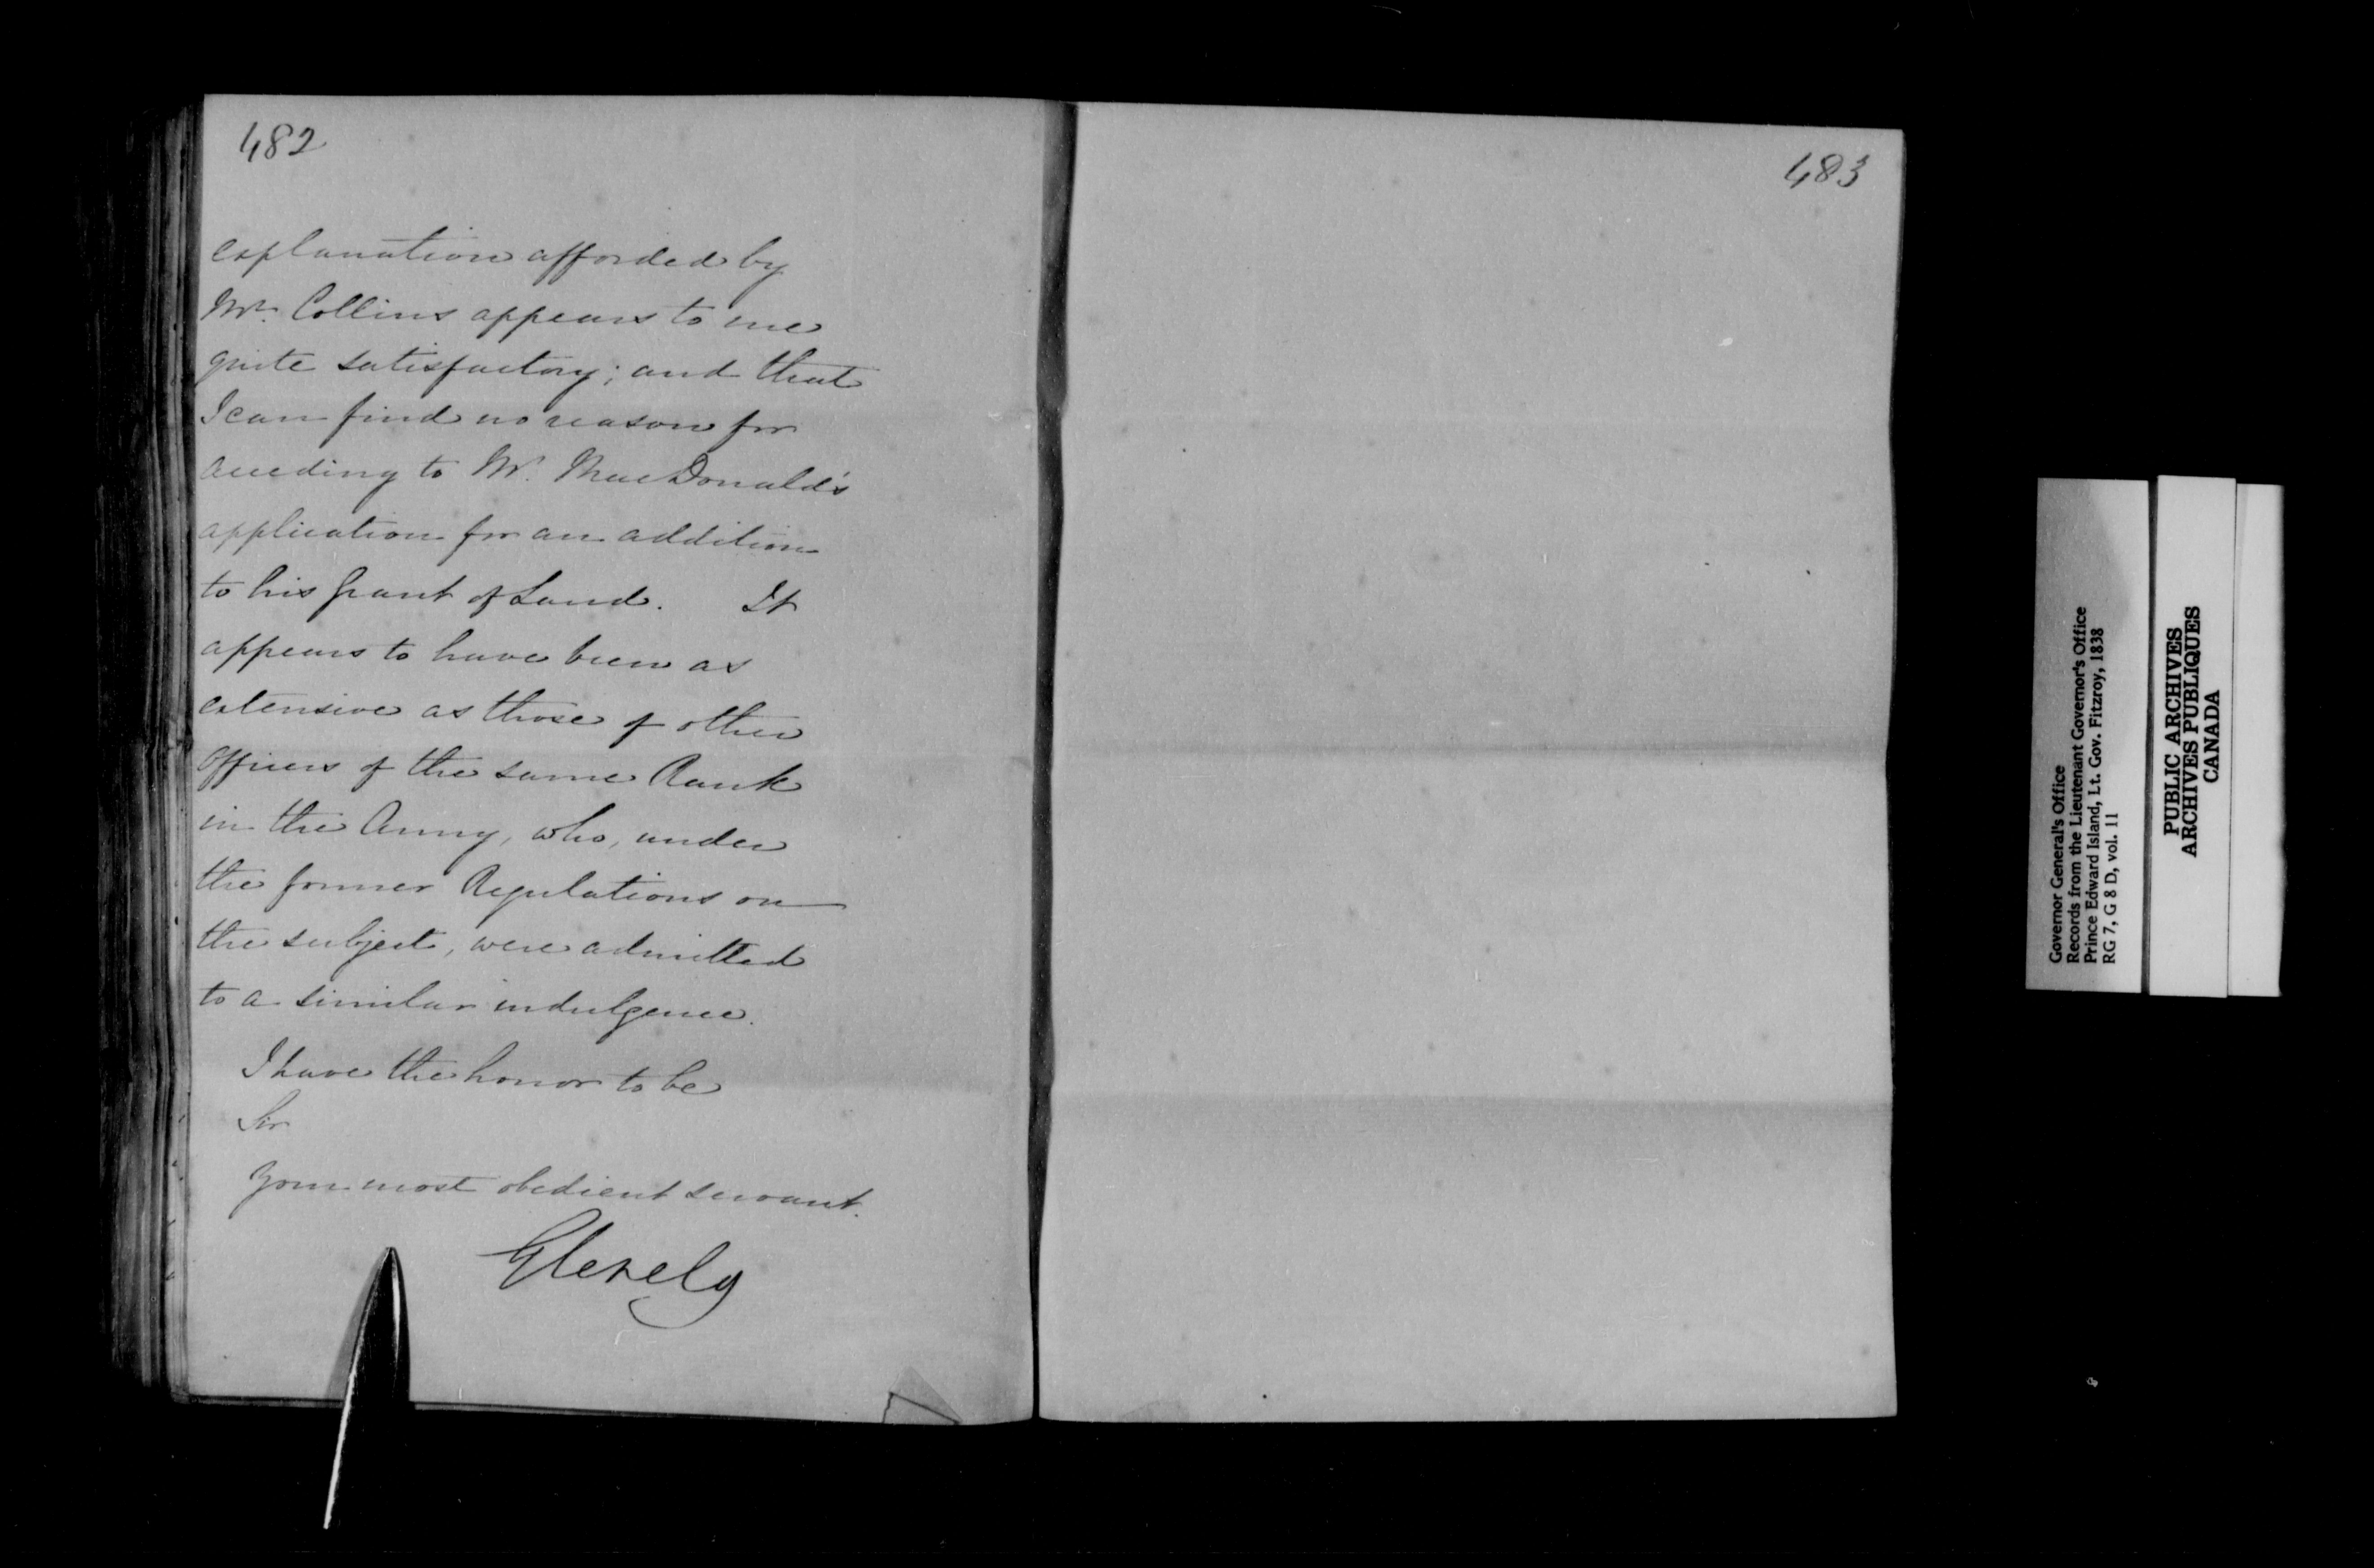 482
explanation afforded by
Mr. Collins appears to me
quite satisfactory; and that
I can find no reason for
acceding to Mr. MacDonald's
application for an addition
to his Grant of Land. It
appears to have been as
extensive as those of other
Officers of the same Rank
in the Army, who, under
the former Regulations on
the subject, were admitted
to a similar indulgence.
I have the honor to be
Sir
Your most obedient servant.
Glenelg
483
Governor General's Office
Records from the Lieutenant Governor's Office
Prince Edward Island, Lt. Gov. Fitzroy, 1838
RG 7, G 8 D, vol. 11
PUBLIC ARCHIVES
ARCHIVES PUBLIQUES
CANADA